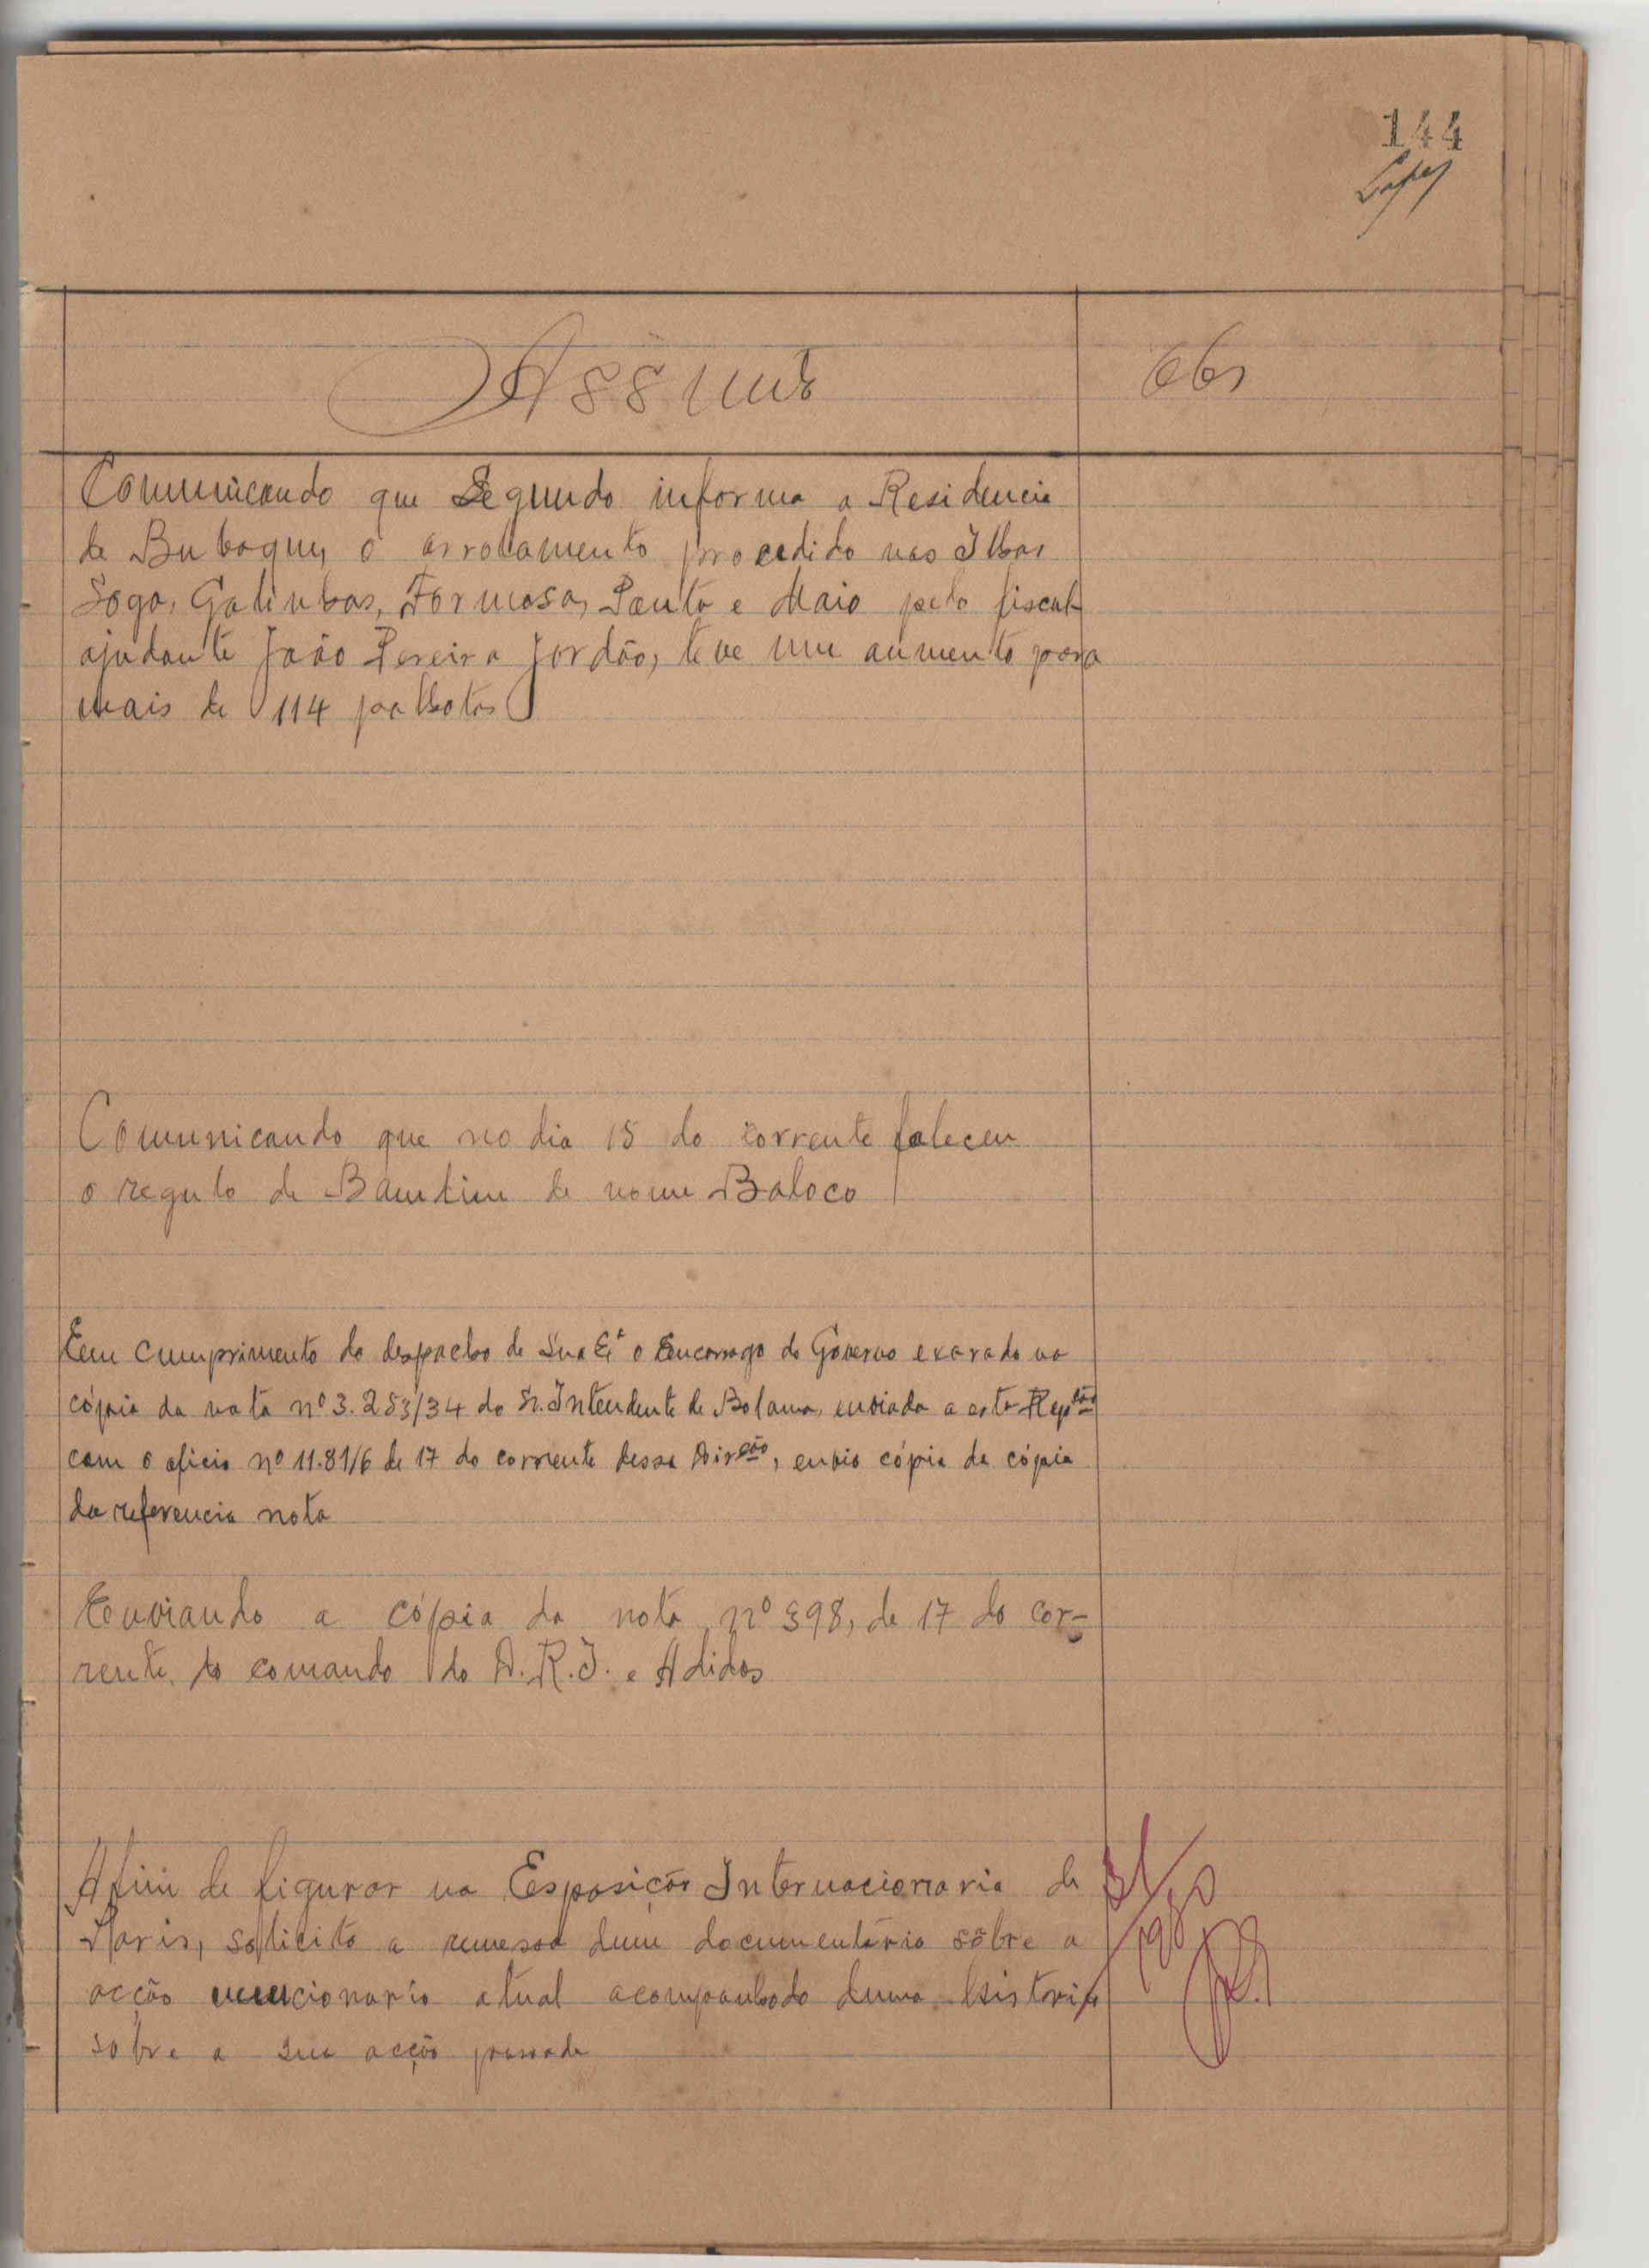 144
Lopes
Assunto
Obs
Comunicando que Segundo informa a Residencia
de Bubaque, o arrolamento procedido nas Ilhas
Soga, Galinhas, Formosa, Ponta e Maio pelo fiscal
ajudante João Pereira Jordão, teve um aumento para
mais de 114 palhotas
Comunicando que no dia 15 do corrente faleceu
o regulo de Bandim de nome Baloco
Em cumprimento do despacho de Sua Exª o Encarrego do Governo exarado na
cópia da nota nº 3.283/34 do Sr. Intendente de Bolama, enviada a esta Repção
com o oficio nº 11.81/6 de 17 do corrente dessa Dirção, envio cópia da cópia
da referencia nota
Enviando a cópia da nota nº 398, de 17 do cor-
rente, do comando do D.R.I. e Adidos
Afim de figurar na Esposição Internacionaria de
Paris, solicito a remessa dum documentário sôbre a
acção atual acompanhado duma historia
sobre a sua acção passada